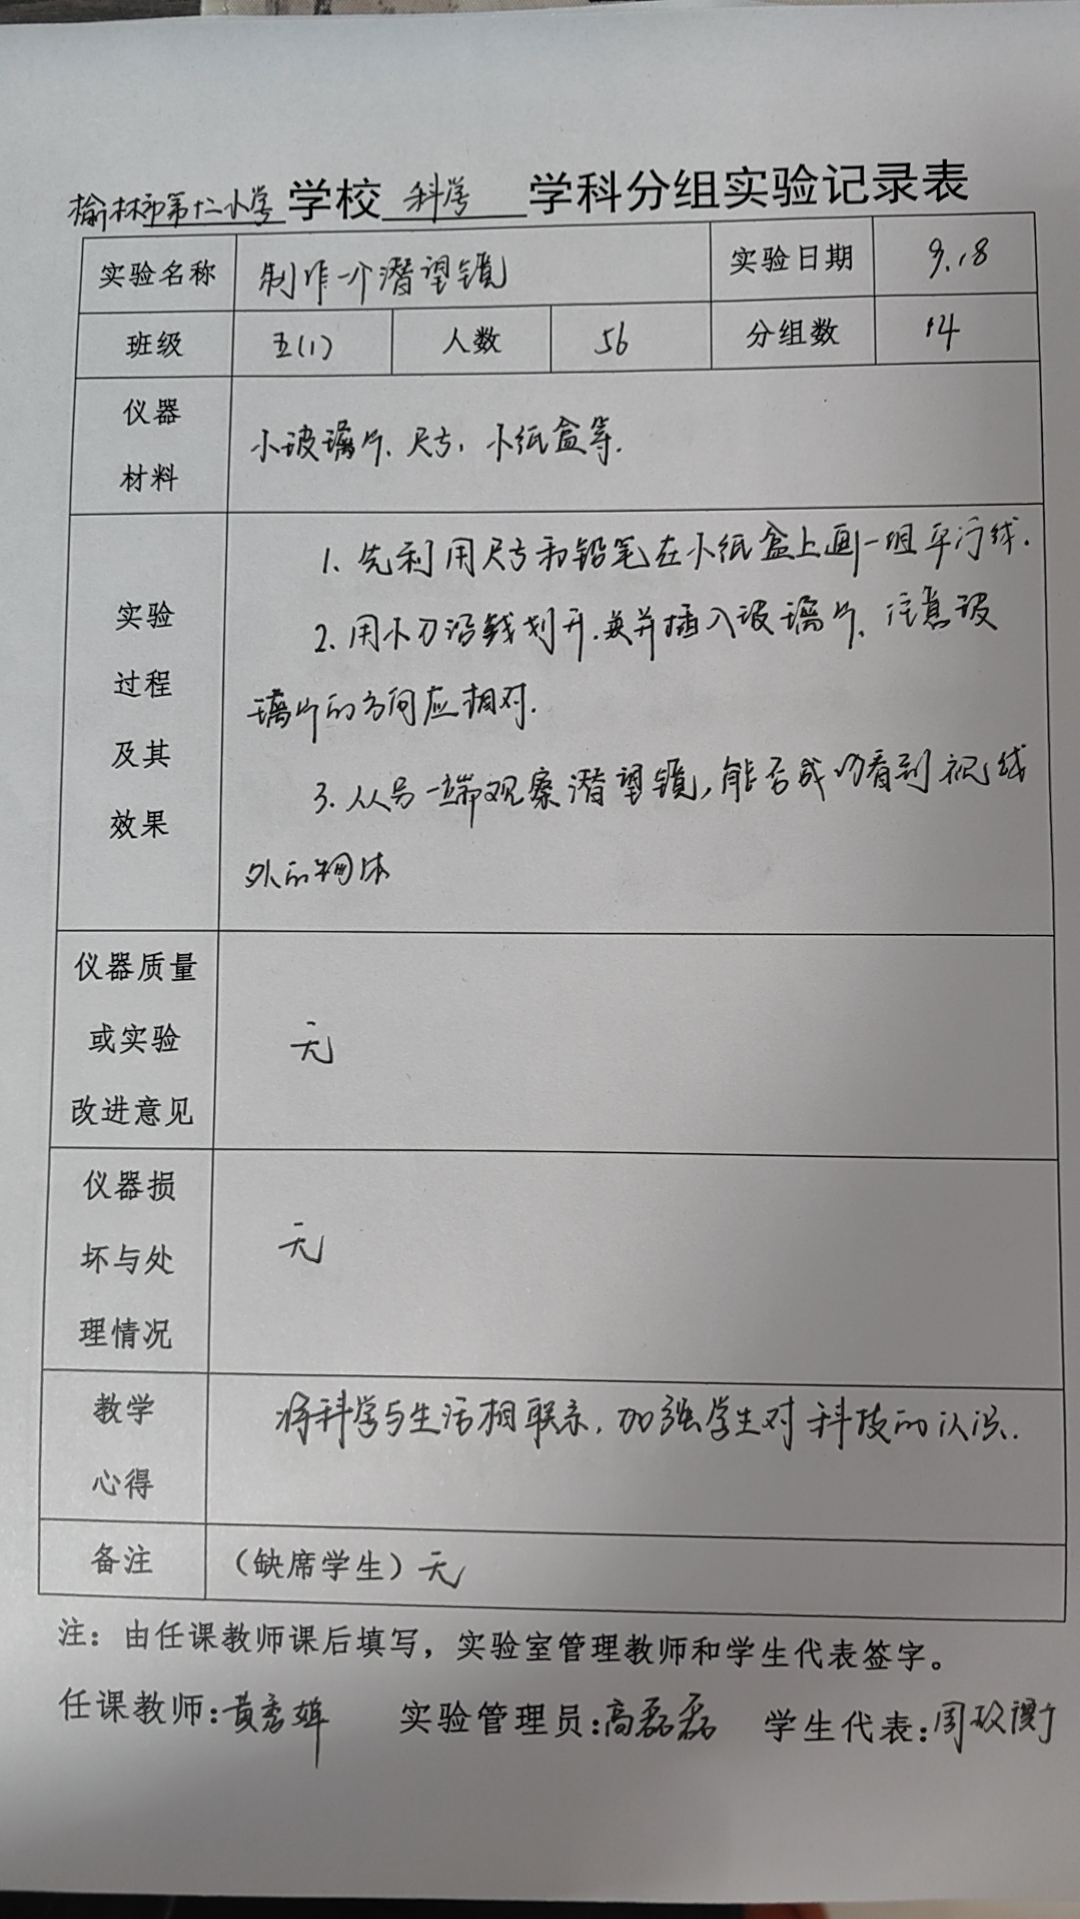 榆林市第十二小学学校 科学 学科分组实验记录表
实验名称 制作一个潜望镜 实验日期 9.18
班级 五(1) 人数 56 分组数 14
仪器
材料
小玻璃片、尺子、小纸盒等.
实验
过程
及其
效果
1. 先利用尺子和铅笔在小纸盒上画一组平行线.
2. 用小刀沿线划开.并插入玻璃片、注意玻
璃片的方向应相对.
3. 从另一端观察潜望镜,能否成功看到视线
外的物体
仪器质量
或实验
改进意见
无
仪器损
坏与处
理情况
无
教学
心得
将科学与生活相联系,加强学生对科技的认识.
备注 (缺席学生)无
注：由任课教师课后填写，实验室管理教师和学生代表签字。
任课教师:黄秀婵 实验管理员:高磊磊 学生代表:周